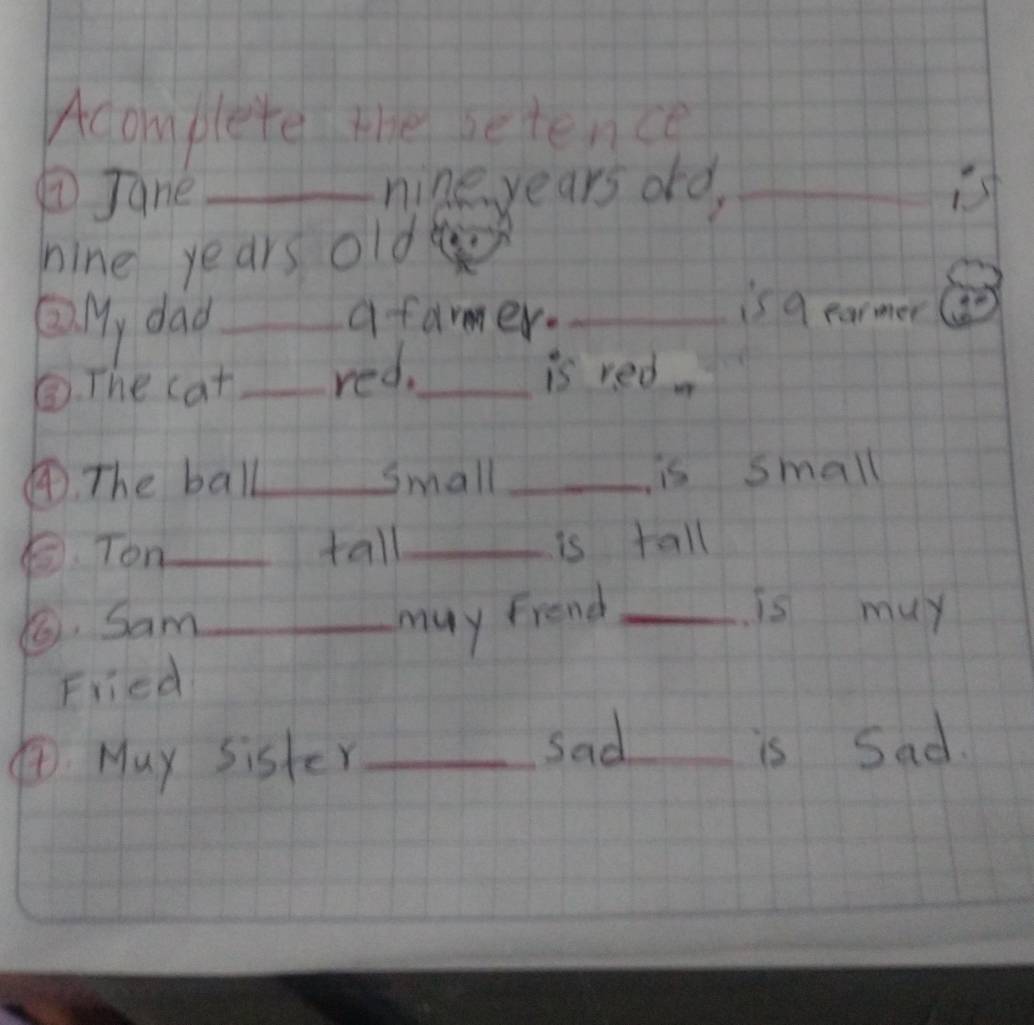 Acomplete the setence
① Jane ______ nine years old, ______ is
nine years old
②. My dad ______ a farmer. ______ is a earmer
③. The cat ____ red. ____ is red
④. The ball ______ small ______. is small
⑤. Ton ____ tall ______ is tall
⑥. Sam ________ muy Frend _____. is muy
Fried
⑦. Muy sister _______ sad ____ is Sad.